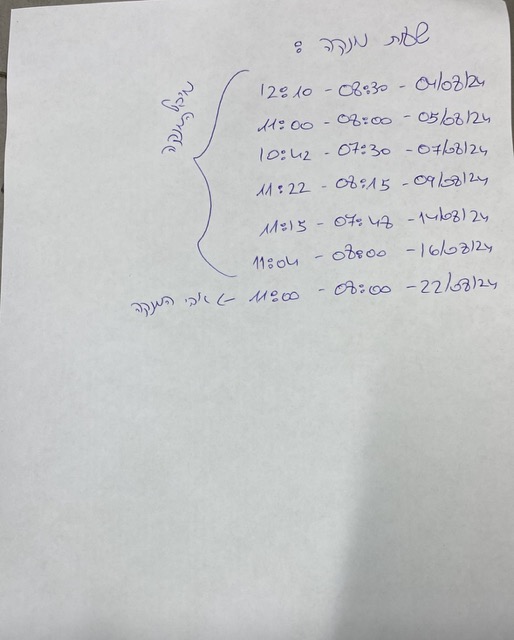 שעות מנקה :
04/08/24 - 08:30 - 12:10
05/08/24 - 08:00 - 11:00
07/08/24 - 07:30 - 10:42
09/08/24 - 08:15 - 11:22
14/08/24 - 07:48 - 11:15
16/08/24 - 08:00 - 11:04
המנקה
22/08/24 - 08:00 - 11:00 <- המנקה